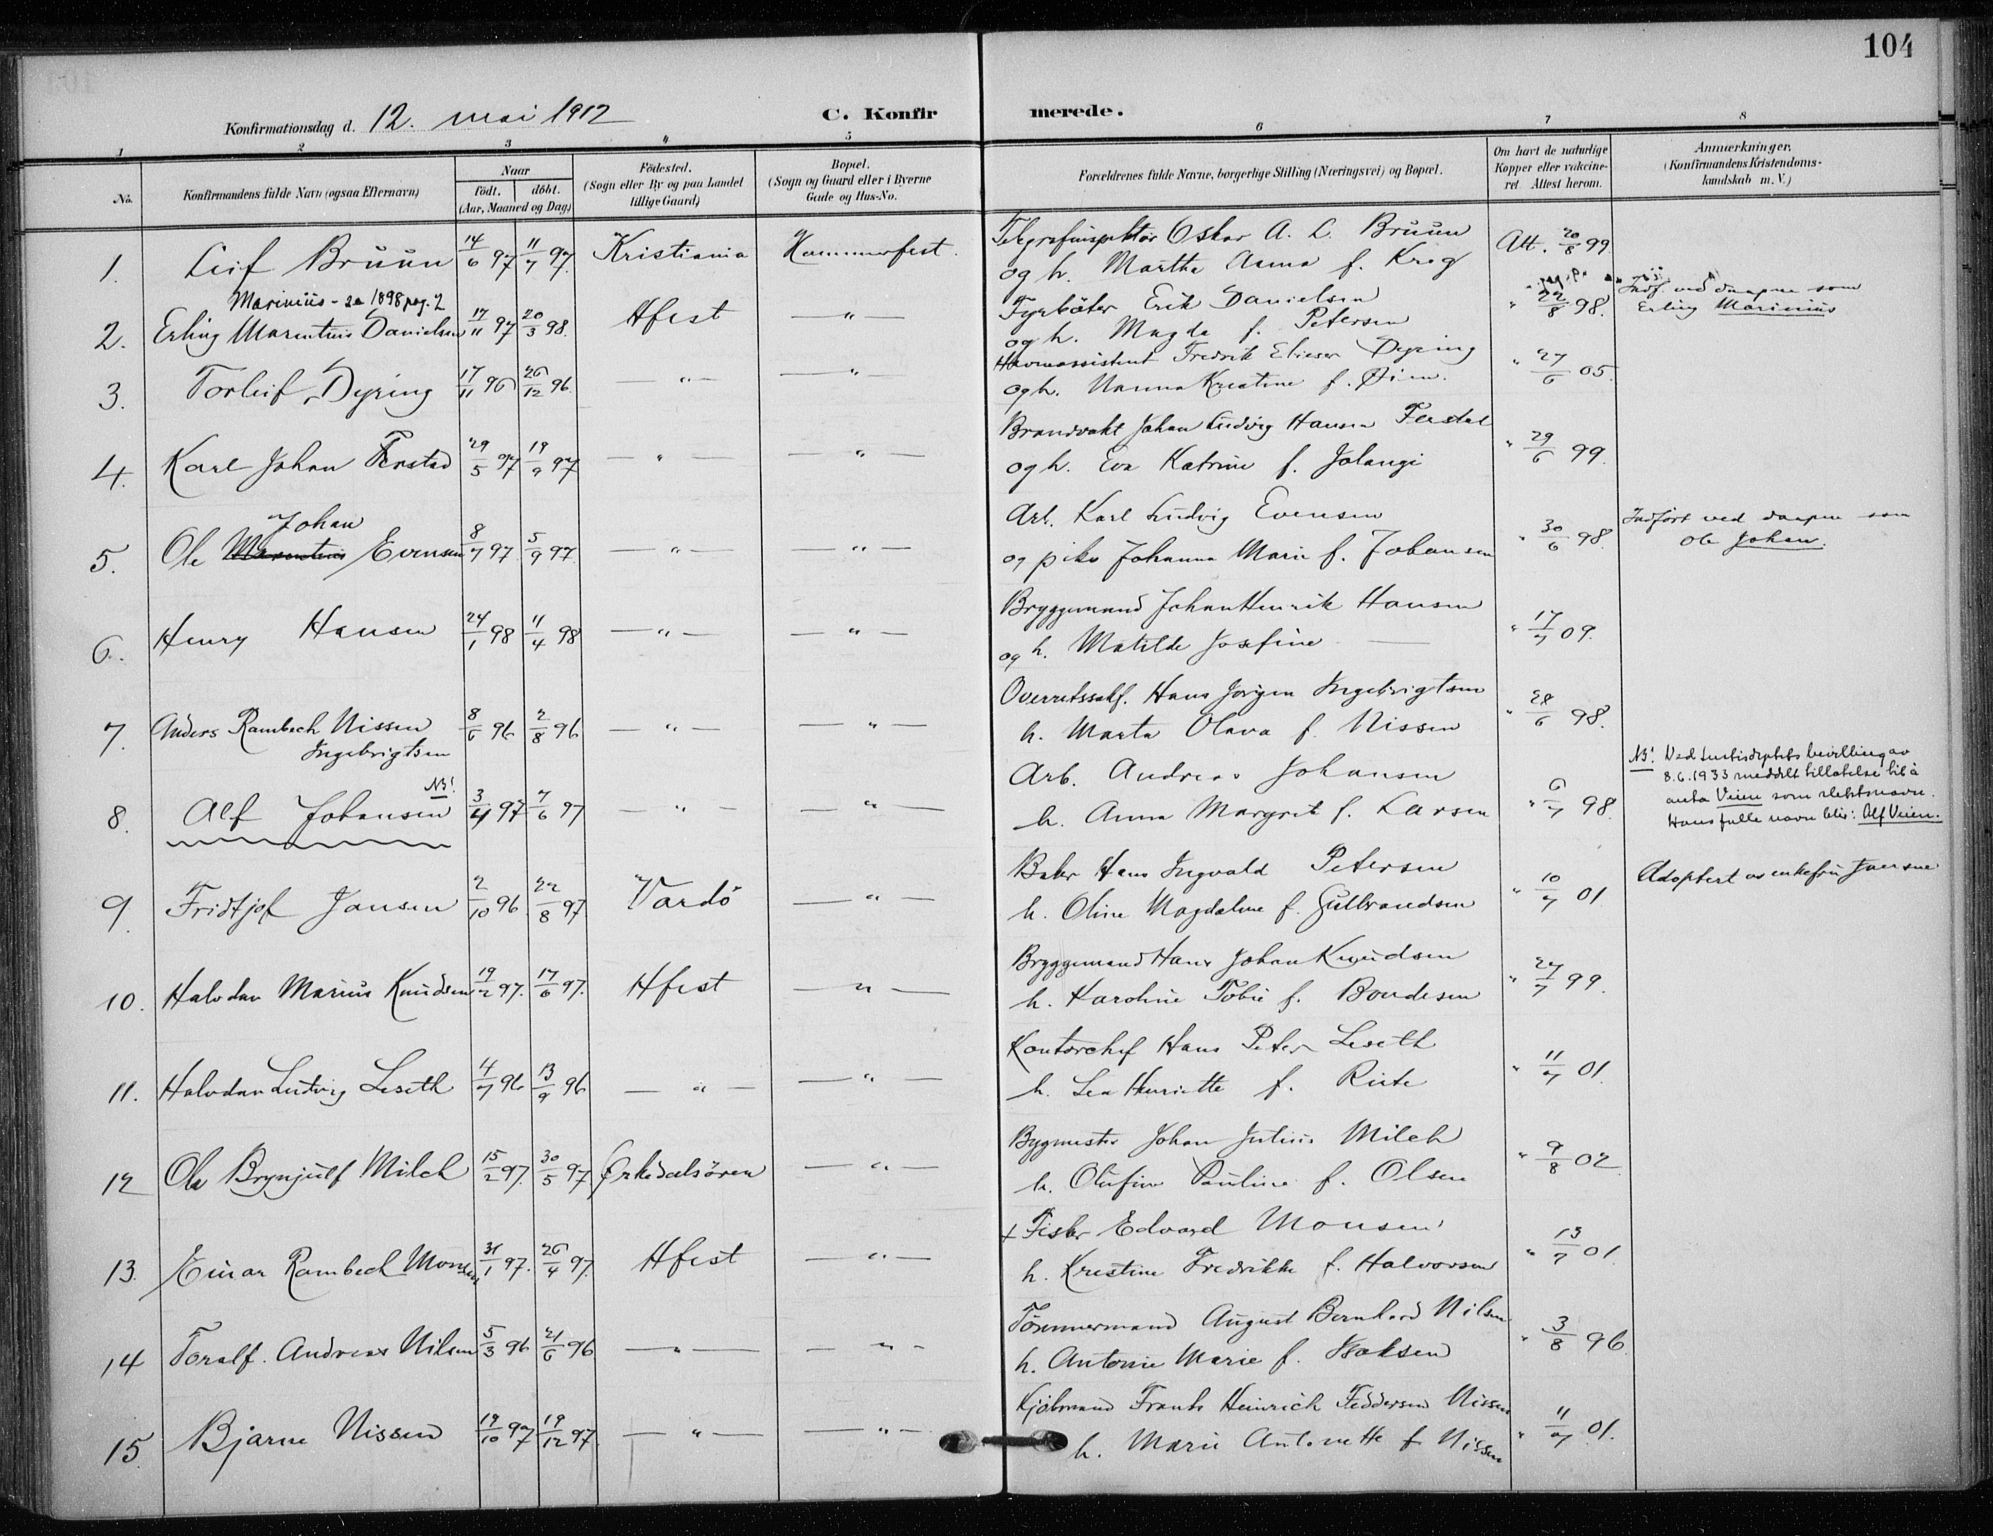 104
Konfirmationsdag d. 12. mai 1912 C. Konfirmerede.
1 2 3 4 5 6 7 8
No. Konfirmandens fulde Navn (ogsaa Efternavn) Naar födt. döbt. (Aar, Maaned og Dag) Födested. (Sogn eller By og paa Landet tillige Gaard) Bopæl. (Sogn og Gaard eller i Byerne Gade og Hus-No. Forældrenes fulde Navne, borgerlige Stilling (Næringsvei) og Bopæl. Om havt de naturlige Kopper eller vakcineret. Attest herom. Anmærkninger. (Konfirmandens Kristendomskundskab m. V.)
1. Leif Bruun 14/6 97 11/7 97. Kristiania Hammerfest. Telegrafinspektör Oskar A. L. Bruun Att. 20/8 99
og h. Martha Anna f. Krog
Marinius - se 1898 pag. 2
2. Erling Marentius Danielsen 17/11 97 20/3 98. Hfest — " — Fyrböter Erik Danielsen " 22/8 98. Indf. ved daapen som
og h. Magda f. Petersen Erling Marinius
3. Torleif Dyring 17/11 96 26/12 96. — " — — " — Havneassistent Fredrik Elieser Dyring " 27/6 05.
og h. Nanna Kristine f.
4. Karl Johan Ferstad 29/5 97 19/9 97 — " — — " — Brandvakt Johan Ludvig Hansen Ferstad " 29/6 99.
og h. Eva Katrine f. Jolangi
Johan
5. Ole Marentius Evensen 8/7 97 5/9 97. — " — — " — Arb. Karl Ludvig Evensen " 30/6 98. Indfört ved daapen som
og pike Johanna Marie f. Johansen Ole Johan.
6. Henry Hansen 24/1 98 11/4 98 — " — — " — Bryggemand Johan Henrik Hansen " 17/7 09.
og h. Matilde Josefine —
7. Anders Rambech Nissen 8/6 96 2/8 96 — " — — " — Overretssakf. Hans Jörgen Ingebrigtsen " 28/6 98.
Ingebrigtsen h. Marta Olava f. Nissen
NB!
8. Alf Johansen 3/4 97 7/6 97 — " — — " — Arb. Andreas Johansen " 6/7 98. NB! Ved Justisdeptets bevilling av
h. Anna Margrit f. Larsen 8.6.1933 meddelt tillatelse til å
anta Veien som slektsnavn.
Hans fulle navn blir: Alf Veien.
9. Fridtjof Jansen 2/10 96. 22/8 97 Vardö — " — Baker Hans Ingvald Petersen " 10/7 01 Adoptert av enkefru Jansen
h. Oline Magdalene f. Gulbrandsen
10. Halvdan Marius Knudsen 19/2 97. 17/6 97. Hfest — " — Bryggemand Hans Johan Knudsen " 27/7 99.
h. Karoline Tobie f. Bondesen
11. Halvdan Ludvig Leseth 4/7 96 13/9 96 — " — — " — Kontorchef Hans Peter Leseth " 11/7 01.
h. Lea Henriette f.
12 Ole Brynjulf Milch 15/2 97. 30/5 97 Örkedalsören — " — Bygmester Johan Julius Milch " 9/8 02.
h. Olufine Pauline f. Olsen
13. Einar Rambech Monsen 31/1 97. 26/4 97. Hfest — " — + Fisker Edvard Monsen " 13/7 01.
h. Kristine Fredrikke f. Halvorsen
14 Toralf Andreas Nilsen 5/3 96 21/6 96 — " — — " — Tömmermand August Bernhard Nilsen " 3/8 96.
h. Antonie Marie f. Isaksen
15 Bjarne Nissen 19/10 97 19/12 97. — " — — " — Kjöbmand Frants Heinrich Feddersen Nissen " 11/7 01.
h. Marie Antonette f. Nissen